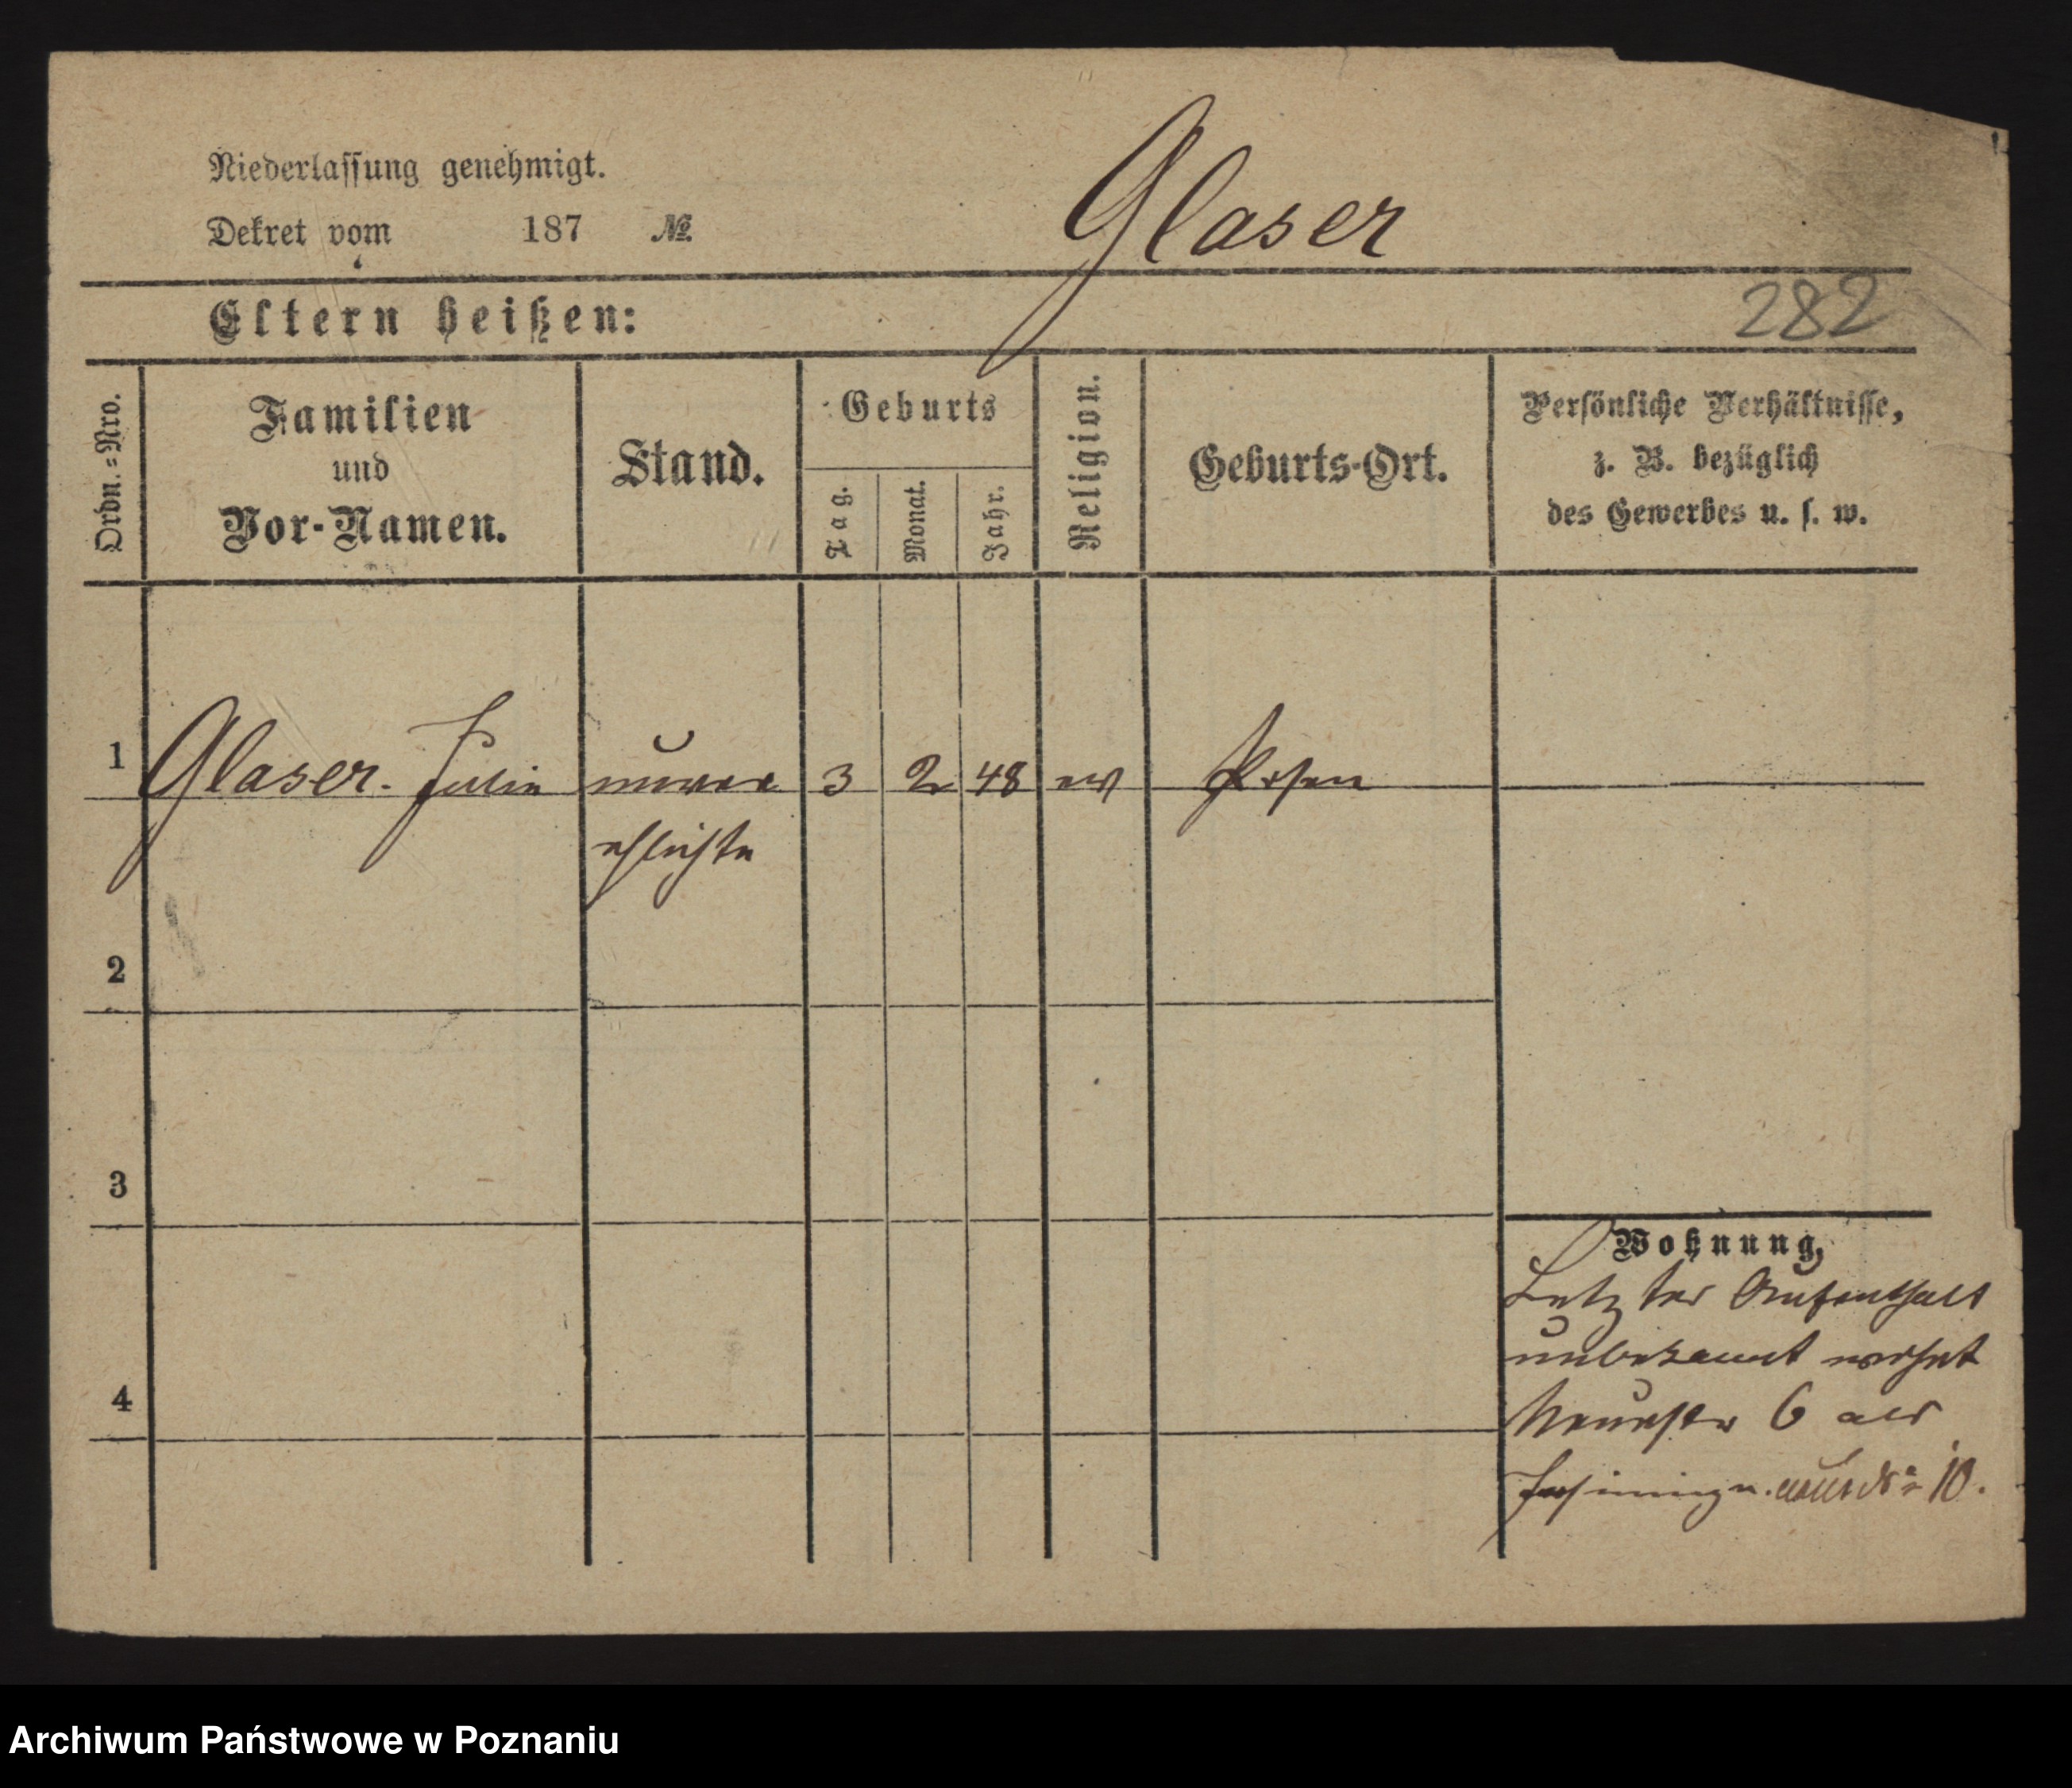 Niederlassung genehmigt.
Dekret vom 187 №
Glaser
Eltern heißen:
282
Ordn.=Nro.
Familien
und
Vor-Namen.
Stand.
Geburts
Tag.
Monat.
Jahr.
Religion.
Geburts-Ort.
Persönliche Verhältnisse,
z. B. bezüglich
des Gewerbes u. s. w.
1 Glaser. Julie unver 3 2 48 ev Posen
ehlichte
2
3
Wohnung,
Letzter Aufenthalt
unbekannt wohnt
4
6 als
10.
Archiwum Państwowe w Poznaniu